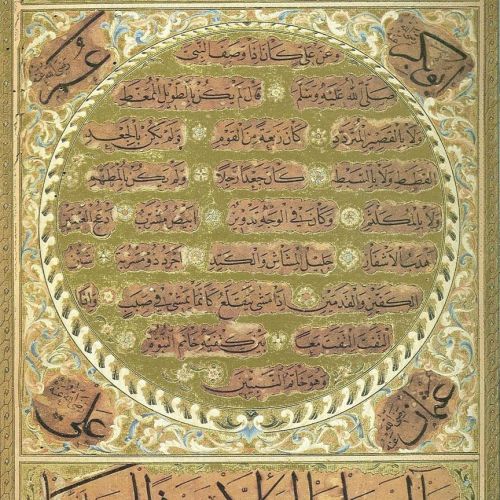 ابو بكر
عمر
وعن علي كان اذا وصف النبي
صلى الله عليه وسلم قال لم يكن بالطويل الممغط
ولا بالقصير المتردد كان ربعة من القوم ولم يكن بالجعد
القطط ولا بالسبط كان جعدا رجلا ولم يكن بالمطهم
ولا بالمكلثم وكان في الوجه تدوير ابيض مشرب ادعج العينين
اهدب الاشفار جليل المشاش والكتد اجرد ذو مسربة شثن
الكفين والقدمين اذا مشى يتقلع كأنما يمشي في صبب واذا
التفت التفت معا بين كتفيه خاتم النبوة
وهو خاتم النبيين
عثمان
علي